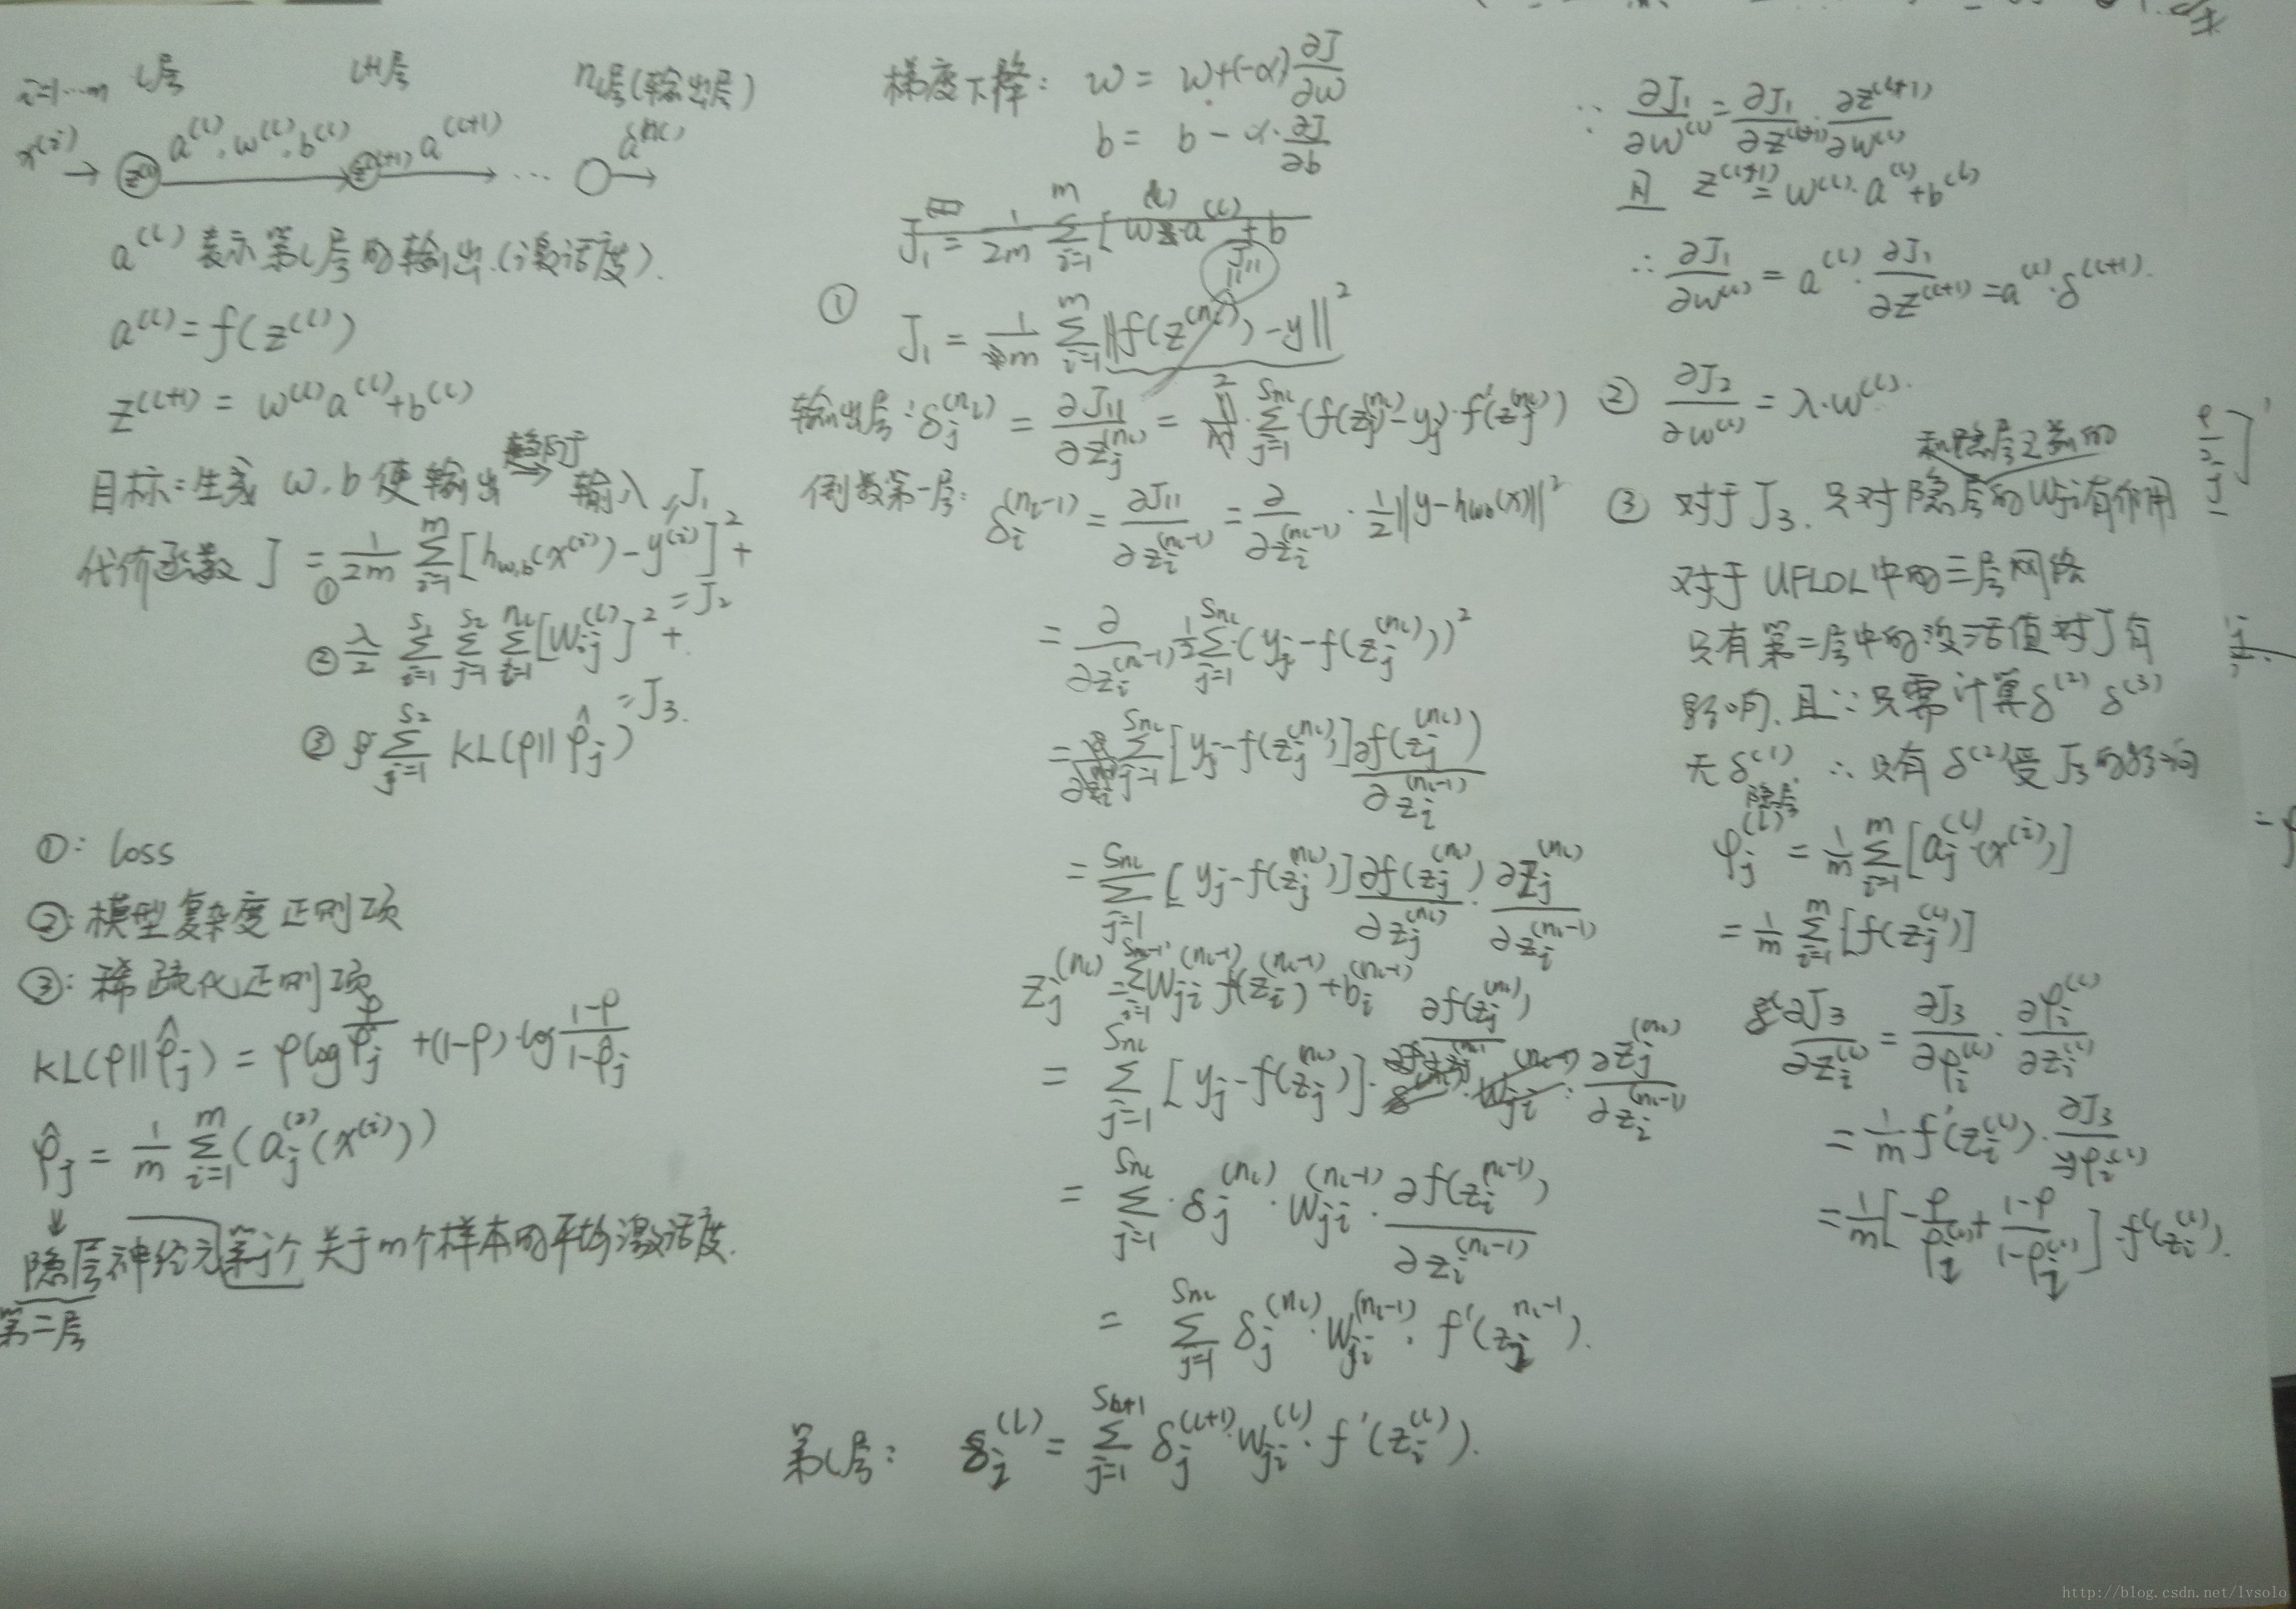 i=1…m l层 l+1层 n_l层(输出层)
x^(i) → z^(l) a^(l), w^(l), b^(l) z^(l+1) a^(l+1) … a^(n_l)
a^(l) 表示第l层的输出.(激活度).
a^(l) = f(z^(l))
z^(l+1) = w^(l)a^(l)+b^(l)
目标:生成 w, b 使输出 趋向于→ 输入
代价函数 J = ① 1/2m Σ_{i=1}^{m} [h_{w,b}(x^(i)) - y^(i)]^2 + J_1
② λ/2 Σ_{i=1}^{s_1} Σ_{j=1}^{s_2} Σ_{l=1}^{n_l} [W_ij^(l)]^2 + = J_2
③ β Σ_{j=1}^{s_2} KL(ρ||ρ̂_j) = J_3.
①: loss
②: 模型复杂度正则项
③: 稀疏化正则项
KL(ρ||ρ̂_j) = ρ log ρ/ρ̂_j + (1-ρ)·log (1-ρ)/(1-ρ̂_j)
ρ̂_j = 1/m Σ_{i=1}^{m} (a_j^(2)(x^(i)))
↓
隐层神经元第j个关于m个样本的平均激活度.
第二层
梯度下降: w = w+(-α) ∂J/∂w
b = b - α·∂J/∂b
J_1 = 1/2m Σ_{i=1}^{m} [w^(l)·a^(l) + b
J_11
①
J_1 = 1/m Σ_{i=1}^{m} ||f(z^(n_l)) - y||^2
输出层: δ_j^(n_l) = ∂J_11/∂z_j^(n_l) = Σ_{j=1}^{S_nl} (f(z_j^(n_l)) - y_j)·f'(z_j^(n_l))
倒数第一层: δ_i^(n_l-1) = ∂J_11/∂z_i^(n_l-1) = ∂/∂z_i^(n_l-1) · 1/2||y-h_wb(x)||^2
= ∂/∂z_i^(n_l-1) 1/2 Σ_{j=1}^{S_nl} (y_j - f(z_j^(n_l)))^2
= Σ_{j=1}^{S_nl} [y_j - f(z_j^(n_l))] ∂f(z_j^(n_l))/∂z_i^(n_l-1)
= Σ_{j=1}^{S_nl} [y_j - f(z_j^(n_l))] ∂f(z_j^(n_l))/∂z_j^(n_l) · ∂z_j^(n_l)/∂z_i^(n_l-1)
z_j^(n_l) = Σ_{i=1}^{S_nl-1} W_ji^(n_l-1) f(z_i^(n_l-1)) + b_i^(n_l-1)
= Σ_{j=1}^{S_nl} [y_j - f(z_j^(n_l))] · ∂f(z_j^(n_l)) · ∂z_j^(n_l)/∂z_i^(n_l-1)
= Σ_{j=1}^{S_nl} · δ_j^(n_l) · W_ji^(n_l-1) · ∂f(z_i^(n_l-1))/∂z_i^(n_l-1)
= Σ_{j=1}^{S_nl} δ_j^(n_l) · W_ji^(n_l-1) · f'(z_i^n_l-1).
第l层: δ_i^(l) = Σ_{j=1}^{S_l+1} δ_j^(l+1) · W_ji^(l) · f'(z_i^(l)).
∵ ∂J_1/∂w^(l) = ∂J_1/∂z^(l+1) · ∂z^(l+1)/∂w^(l)
且 z^(l+1) = w^(l)·a^(l)+b^(l)
∴ ∂J_1/∂w^(l) = a^(l) · ∂J_1/∂z^(l+1) = a^(l)·δ^(l+1).
② ∂J_2/∂w^(l) = λ·w^(l).
和隐层之前的
③ 对于J_3. 只对隐层的W_ji有作用
对于UFLDL中的三层网络
只有第二层中的激活值对J有
影响. 且∵只需计算δ^(2) δ^(3)
无δ^(1). ∴只有δ^(2)受J_3的影响
隐层
ρ_j^(l) = 1/m Σ_{i=1}^{m} [a_j^(l)(x^(i))]
= 1/m Σ_{i=1}^{m} [f(z_j^(l))]
∂J_3/∂z_i^(l) = ∂J_3/∂ρ_i^(l) · ∂ρ_i^(l)/∂z_i^(l)
= 1/m f'(z_i^(l)) · ∂J_3/∂ρ_i^(l)
= 1/m [-ρ/ρ_i^(l) + (1-ρ)/(1-ρ_i^(l))] · f'(z_i^(l)).
http://blog.csdn.net/lvsolo